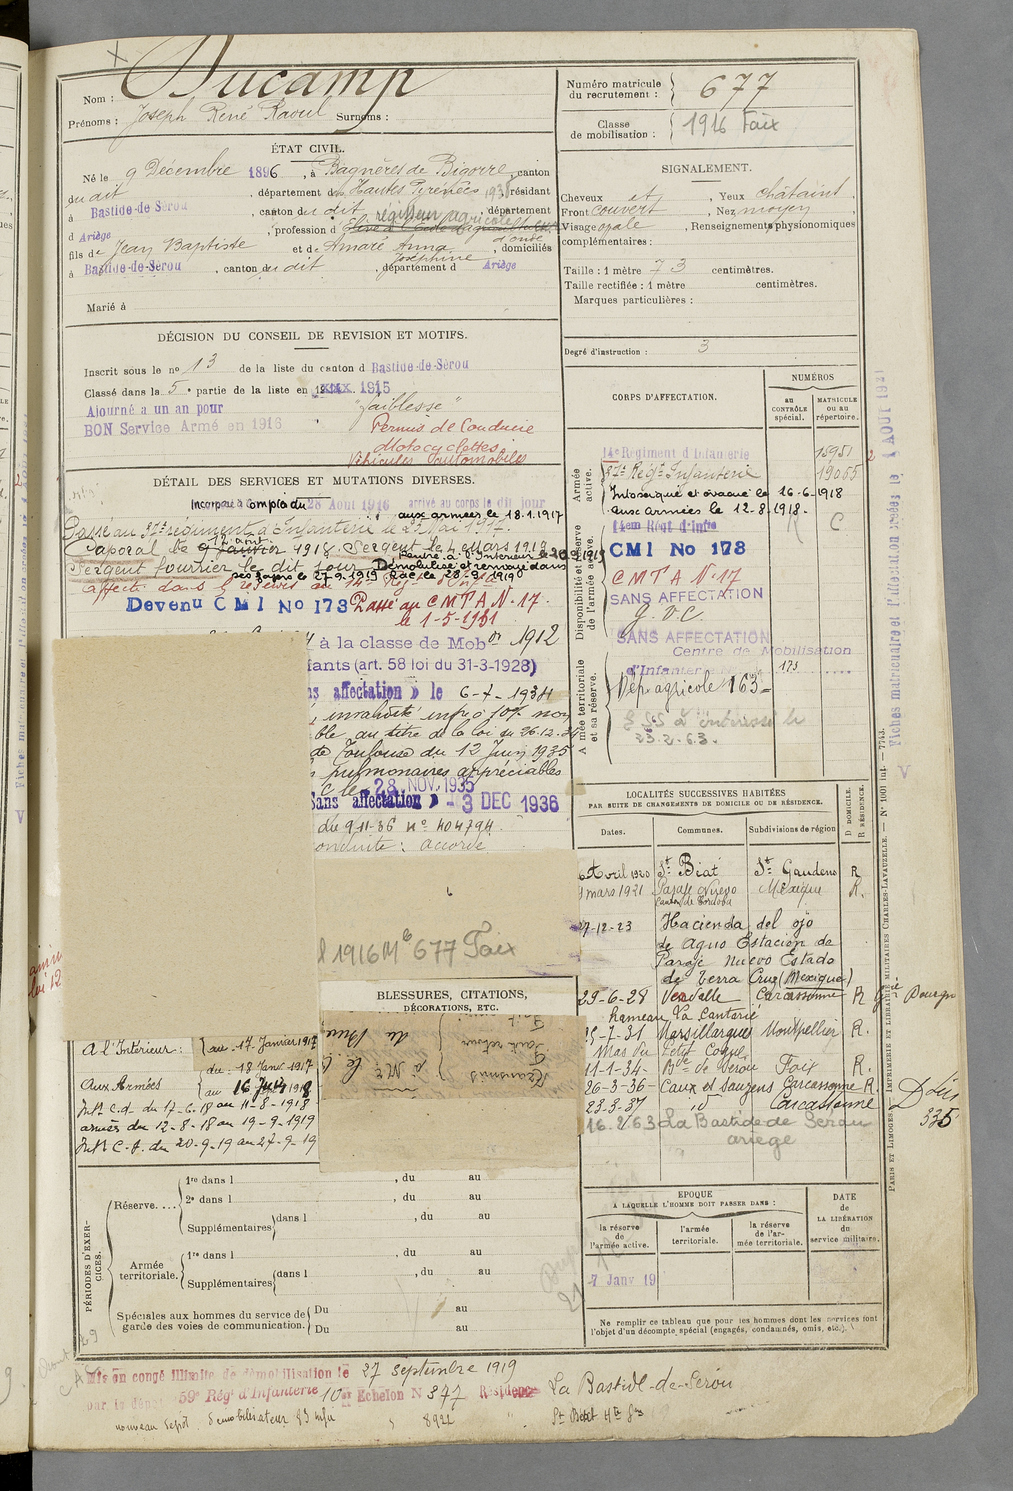 Nom : Ducamp
Prénoms : Joseph René Raoul Surnoms :
Numéro matricule du recrutement : 677
Classe de mobilisation : 1916 Foix
ÉTAT CIVIL.
Né le 9 Décembre 1896, à Bagnères de Bigorre, canton
du dit, département des Hautes Pyrénées, résidant
à Bastide-de-Sérou, canton du dit, département
d Ariège, profession d régisseur agricole
fils de Jean Baptiste et de Amaré Anna Joséphine, domiciliés
à Bastide-de-Sérou, canton du dit, département d Ariège
Marié à
SIGNALEMENT.
Cheveux cht, Yeux châtaint,
Front couvert, Nez moyen,
Visage ovale, Renseignements physionomiques
complémentaires :
Taille : 1 mètre 73 centimètres.
Taille rectifiée : 1 mètre centimètres.
Marques particulières :
Degré d'instruction : 3
DÉCISION DU CONSEIL DE REVISION ET MOTIFS.
Inscrit sous le no 13 de la liste du canton d Bastide-de-Sérou
Classé dans la 5e partie de la liste en 1915
Ajourné a un an pour "faiblesse"
BON Service Armé en 1916
Permis de Conduire
Motocyclettes
Véhicules Automobiles
DÉTAIL DES SERVICES ET MUTATIONS DIVERSES.
Incorporé à compter du 28 Aout 1916 arrivé au corps le dit jour
aux armées le 18.1.1917
Passé au régiment d'Infanterie le Mai 1917.
Caporal le 9 Janvier 1918. Sergent le 1 Mars 1919
Rentré à l'Intérieur le 20.9.1919
Sergent fourrier le dit jour Démobilisé et renvoyé dans
ses foyers le 27.9.1919 Rac le 28.9.1919
Devenu C M I No 173 Passé au C M T A N. 17.
le 1-5-1931
à la classe de Mobon 1912
fants (art. 58 loi du 31-3-1928)
ns affectation » le 6-7-1934
invalidité infre à 10% non
ble au titre de la loi du 26.12.34
de Toulouse du 12 Juin 1935
pulmonaires appréciables
C le 28 NOV. 1935
Sans affectation » - 3 DEC 1936
du 9-11-36 no 404794.
onduite : accordé
1916 Mle 677 Foix
BLESSURES, CITATIONS,
DÉCORATIONS, ETC.
A l'Intérieur : au 17 Janvier 1917
du 18 Janv 1917
Aux Armées au 16 Juin 1918
Int. C.d. du 17-6-18 au 11-8-1918
armées du 12-8-18 au 19-9-1919
Int. C.d. du 20-9-19 au 27-9-19
CORPS D'AFFECTATION.
NUMÉROS
au CONTRÔLE spécial.
MATRICULE ou au répertoire.
Armée active.
14e Régiment d'Infanterie 15951
Régt Infanterie 19055
Intoxiqué et évacué le 16-6-1918
aux armées le 12-8-1918.
Disponibilité et réserve de l'armée active.
14em Régt d'Infie
CMI No 173
C M T A N. 17
SANS AFFECTATION
G.V.C.
SANS AFFECTATION
Centre de Mobilisation
d'Infanterie 173
Armée territoriale et sa réserve.
Dép. agricole 163
LOCALITÉS SUCCESSIVES HABITÉES
PAR SUITE DE CHANGEMENTS DE DOMICILE OU DE RÉSIDENCE.
Dates. Communes. Subdivisions de région D DOMICILE. R RÉSIDENCE.
Avril 1920 St Béat St Gaudens R
mars 1921 Paraje Nuevo Mexique R.
Canton de Cordoba
27-12-23 Hacienda del ojo
de Agua Estacion de
Paraje Nuevo Estado
de Verra Cruz (Mexique)
29-6-28 Verdalle Carcassonne R
hameau La Cantarié
25-7-31 Marsillargues Montpellier R.
Mas du Petit Coque
11-1-34- Bde de Serou Foix R
26-3-36- Caux et Sauzens Carcassonne R.
23-3-37 id Carcassonne
16.2.63 La Bastide de Serou
ariège
335
PÉRIODES D'EXERCICES.
Réserve.... 1re dans l , du au
2e dans l , du au
Supplémentaires dans l , du au
Armée territoriale. 1re dans l , du au
Supplémentaires dans l , du au
Spéciales aux hommes du service de garde des voies de communication. Du au
Du au
EPOQUE
A LAQUELLE L'HOMME DOIT PASSER DANS :
la réserve de l'armée active. l'armée territoriale. la réserve de l'armée territoriale.
DATE de LA LIBÉRATION du service militaire.
7 Janv 19
Ne remplir ce tableau que pour les hommes dont les services font
l'objet d'un décompte spécial (engagés, condamnés, omis, etc.).
Mis en congé illimité de démobilisation le 27 Septembre 1919
par le dépôt 59e Régt d'Infanterie 10e Echelon N 377 Résidence La Bastide-de-Sérou
nouveau dépôt démobilisateur 83 infie 8922 St Béat Hte Gne
PARIS ET LIMOGES. — IMPRIMERIE ET LIBRAIRIE MILITAIRES CHARLES-LAVAUZELLE. — No 1001 int. — 7743.
Fiches matriculaire et l'affectation créées le 1 AOUT 1931